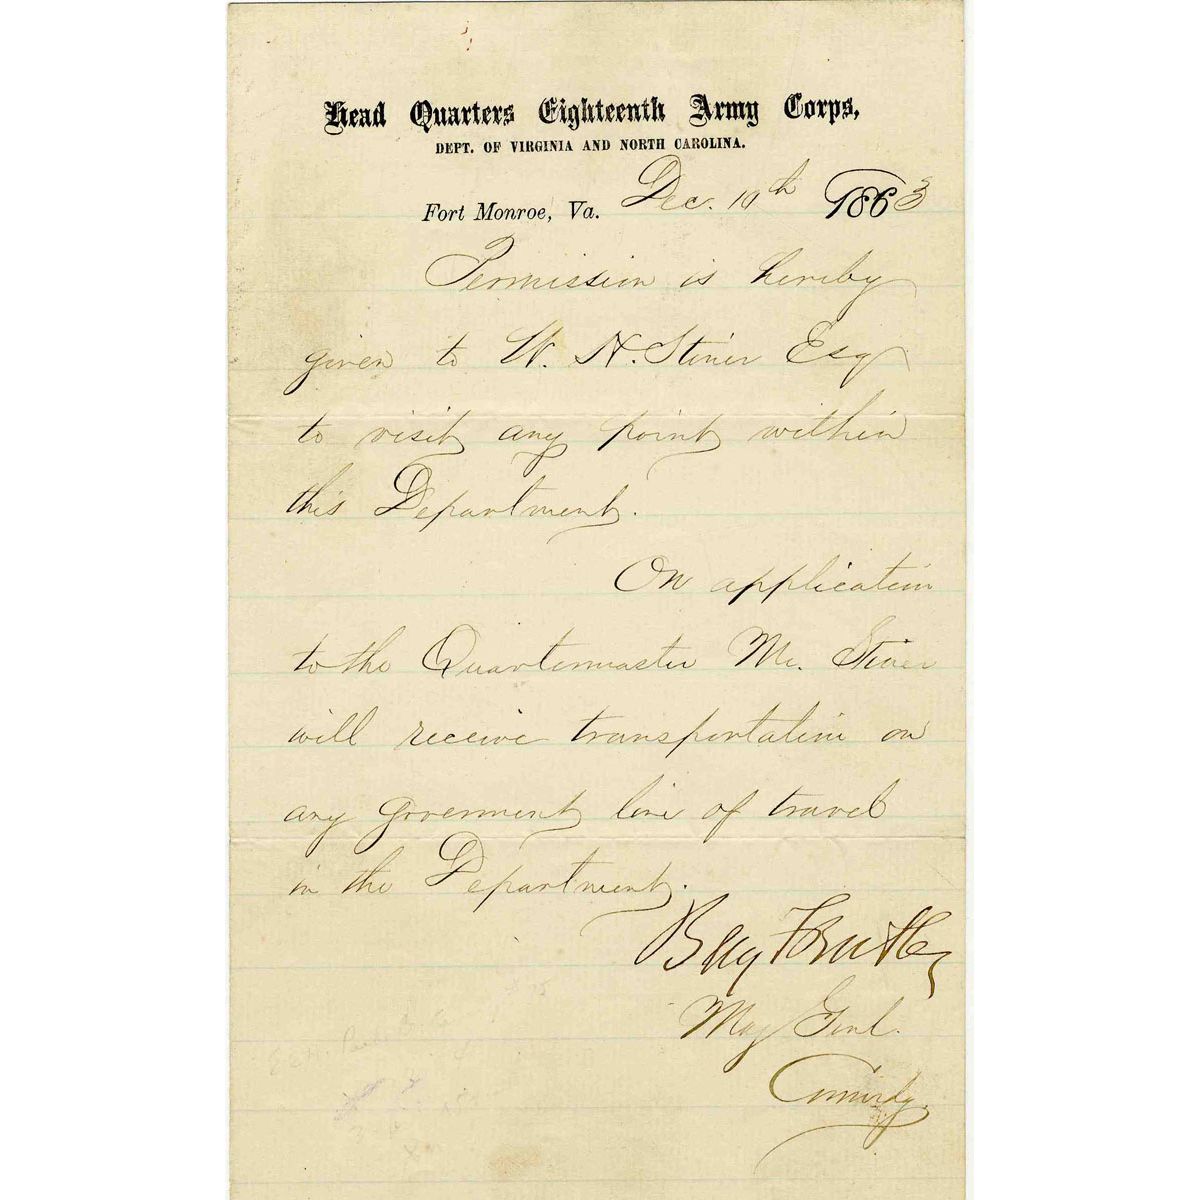 Head Quarters Eighteenth Army Corps,
DEPT. OF VIRGINIA AND NORTH CAROLINA.
Fort Monroe, Va. Dec. 10th 1863
Permission is hereby
given to W. H. Stiner Esq
to visit any point within
this Department.
On application
to the Quartermaster Mr. Stiner
will receive transportation on
any goverment line of travel
in the Department.
Benj F Butler
Maj Genl.
Comirdg